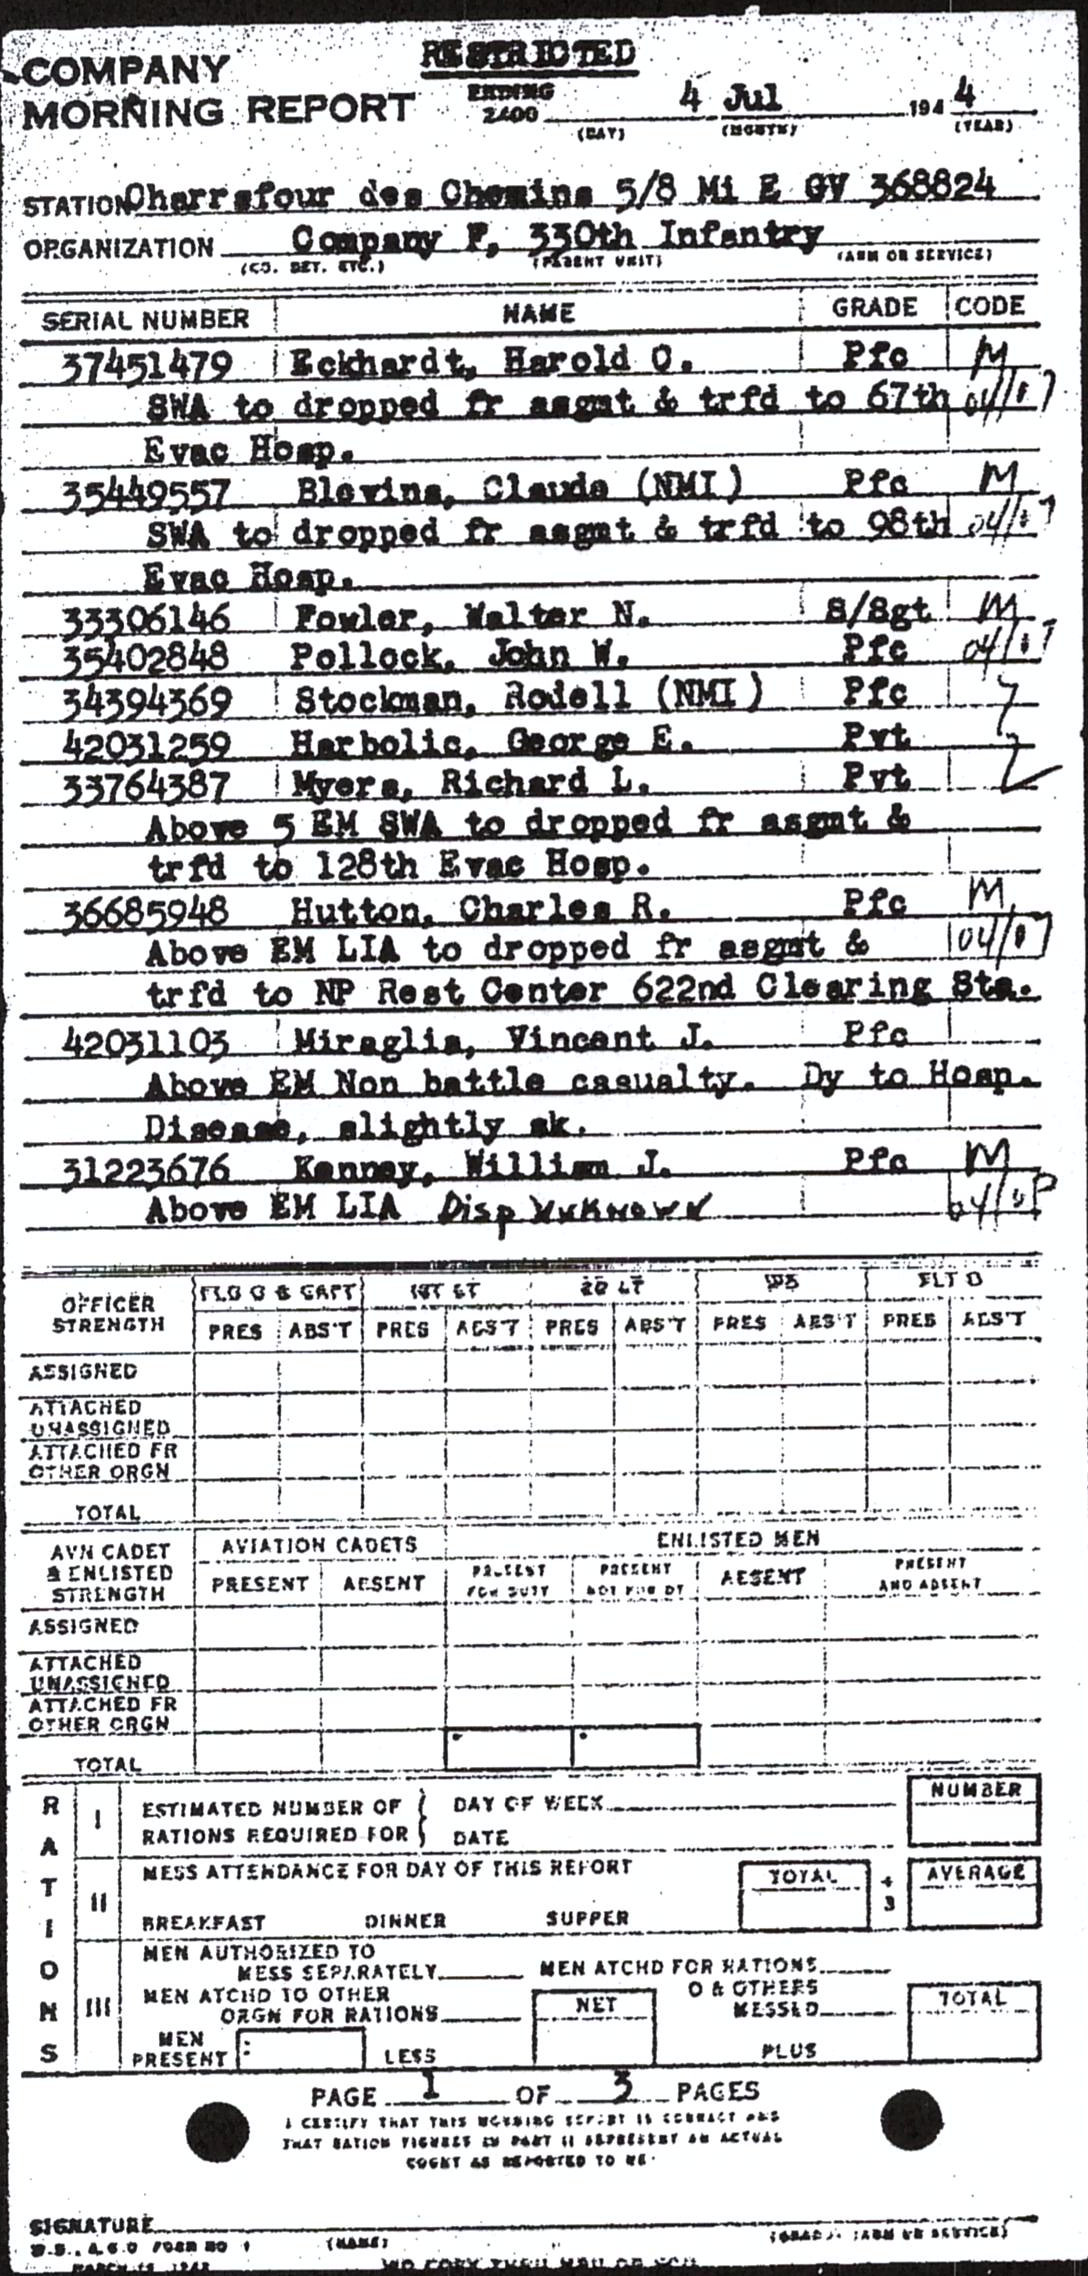 RESTRICTED
COMPANY
MORNING REPORT
ENDING
2400 4 Jul 1944
(DAY) (MONTH) (YEAR)
STATION Charrefour des Chemins 5/8 Mi E GV 368824
ORGANIZATION Company F, 330th Infantry
(CO. DET. ETC.) (PARENT UNIT) (ARM OR SERVICE)
SERIAL NUMBER NAME GRADE CODE
37451479 Eckhardt, Harold O. Pfc M
SWA to dropped fr asgmt & trfd to 67th
Evac Hosp.
35449557 Blevins, Claude (NMI) Pfc M
SWA to dropped fr asgmt & trfd to 98th
Evac Hosp.
33306146 Fowler, Walter N. S/Sgt M
35402848 Pollock, John W. Pfc
34394369 Stockman, Rodell (NMI) Pfc
42031259 Harbolic, George E. Pvt
33764387 Myers, Richard L. Pvt
Above 5 EM SWA to dropped fr asgmt &
trfd to 128th Evac Hosp.
36685948 Hutton, Charles R. Pfc M
Above EM LIA to dropped fr asgmt &
trfd to NP Rest Center 622nd Clearing Sta.
42031103 Miraglia, Vincent J. Pfc
Above EM Non battle casualty. Dy to Hosp.
Disease, slightly sk.
31223676 Kenney, William J. Pfc M
Above EM LIA Disp Unknown
OFFICER STRENGTH FLG O & CAPT 1ST LT 2D LT WO FLT O
PRES ABS'T PRES ABS'T PRES ABS'T PRES ABS'T PRES ABS'T
ASSIGNED
ATTACHED
UNASSIGNED
ATTACHED FR
OTHER ORGN
TOTAL
AVN CADET & ENLISTED STRENGTH AVIATION CADETS ENLISTED MEN
PRESENT ABSENT PRESENT FOR DUTY PRESENT NOT FOR DY ABSENT PRESENT AND ABSENT
ASSIGNED
ATTACHED
UNASSIGNED
ATTACHED FR
OTHER ORGN
TOTAL
RATIONS
I ESTIMATED NUMBER OF DAY OF WEEK NUMBER
RATIONS REQUIRED FOR DATE
II MESS ATTENDANCE FOR DAY OF THIS REPORT TOTAL ÷ 3 AVERAGE
BREAKFAST DINNER SUPPER
III MEN AUTHORIZED TO
MESS SEPARATELY MEN ATCHD FOR RATIONS
MEN ATCHD TO OTHER O & OTHERS
ORGN FOR RATIONS NET MESSED TOTAL
MEN
PRESENT LESS PLUS
PAGE 1 OF 3 PAGES
I CERTIFY THAT THIS MORNING REPORT IS CORRECT AND
THAT RATION FIGURES IN PART II REPRESENT AN ACTUAL
COUNT AS REPORTED TO ME
SIGNATURE
(NAME) (GRADE) (ARM OR SERVICE)
W.D., A.G.O FORM NO 1
MARCH